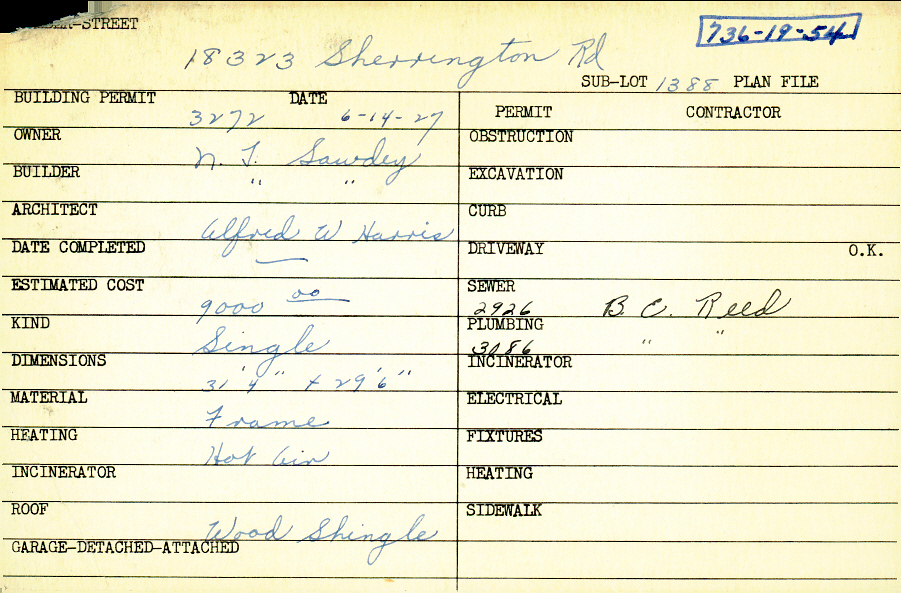 -STREET
736-19-54
18323 Sherrington Rd
SUB-LOT 1388 PLAN FILE
BUILDING PERMIT DATE
3272 6-14-27
PERMIT CONTRACTOR
OWNER
N. T. Sawdey
OBSTRUCTION
BUILDER
" "
EXCAVATION
ARCHITECT
Alfred W Harris
CURB
DATE COMPLETED
—
DRIVEWAY O.K.
ESTIMATED COST
9000 00
SEWER
2926 B. C. Reed
KIND
Single
PLUMBING
3086 " "
DIMENSIONS
31'4" + 29'6"
INCINERATOR
MATERIAL
Frame
ELECTRICAL
HEATING
Hot Air
FIXTURES
INCINERATOR
HEATING
ROOF
Wood Shingle
SIDEWALK
GARAGE-DETACHED-ATTACHED